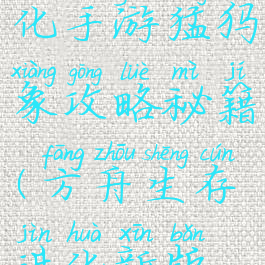 化手游猛犸
xiàng gōng lüè mì jí
象攻略秘籍
fāng zhōu shēng cún
(方舟生存
jìn huà xīn bǎn
进化新版